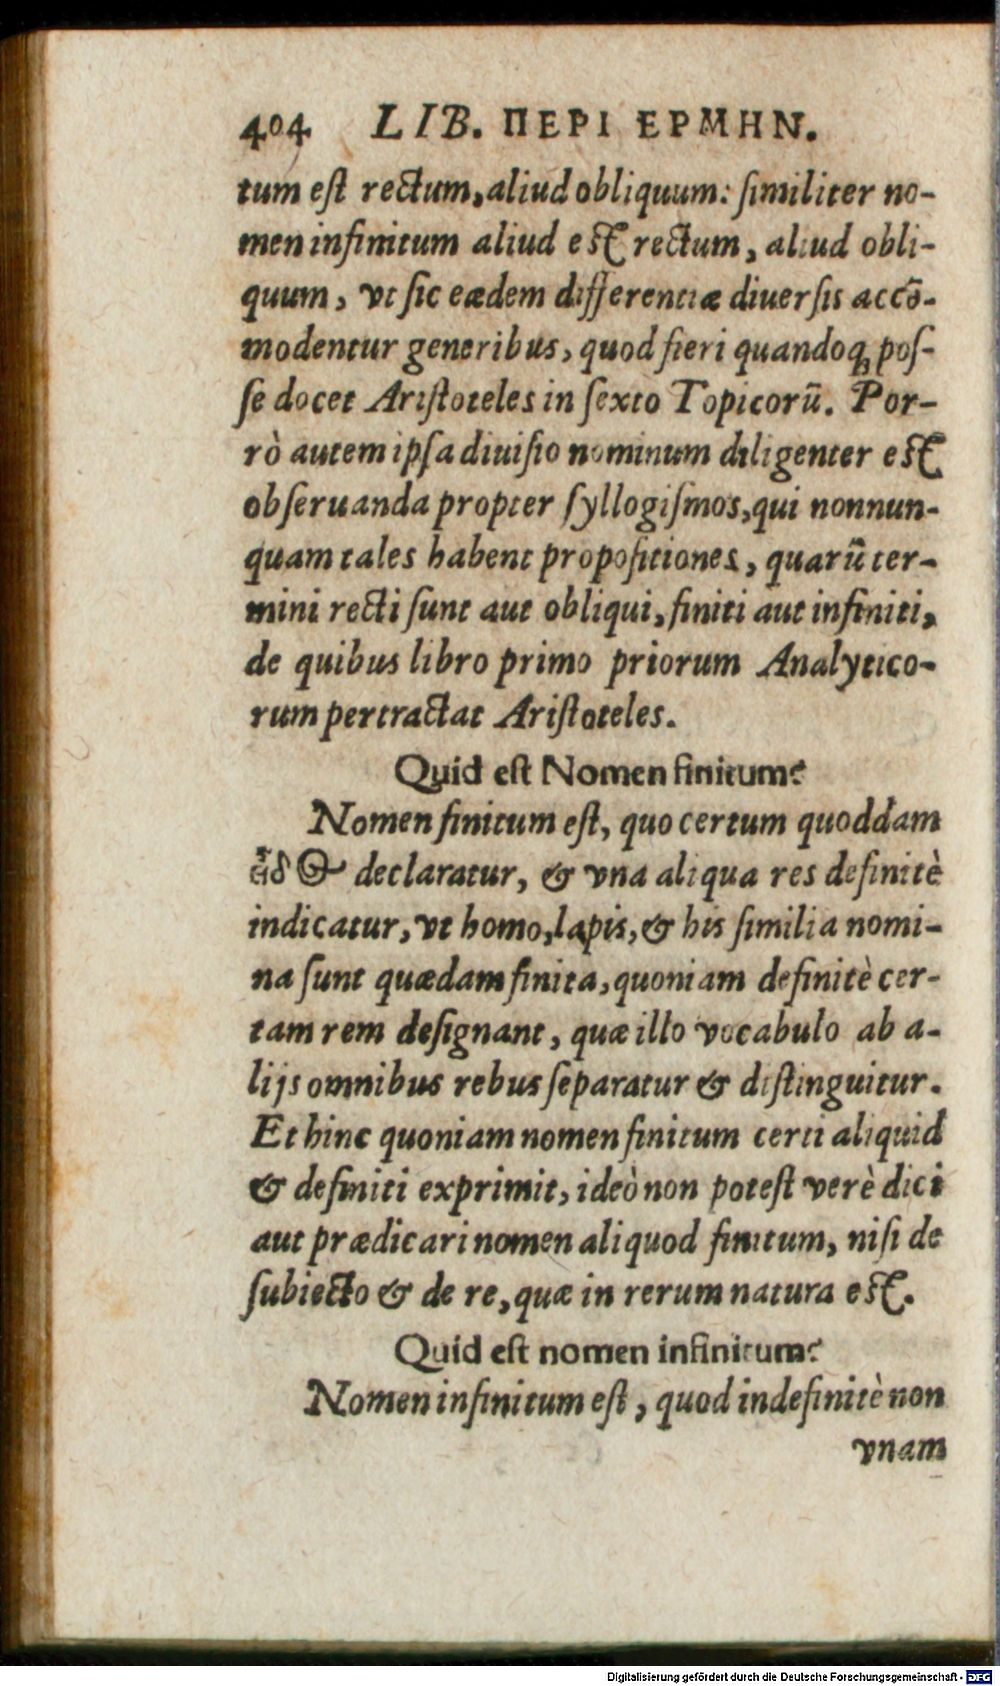 404 LIB. ΠΕΡΙ ΕΡΜΗΝ.
tum eſt rectum, aliud obliquum: ſimiliter no-
men infinitum aliud eſt rectum, aliud obli-
quum, vt ſic eædem differentiæ diuerſis accõ-
modentur generibus, quod fieri quandoq; poſ-
ſe docet Ariſtoteles in ſexto Topicorũ. Por-
rò autem ipſa diuiſio nominum diligenter eſt
obſeruanda propter ſyllogiſmos, qui nonnun-
quam tales habent propoſitiones, quarũ ter-
mini recti ſunt aut obliqui, finiti aut infiniti,
de quibus libro primo priorum Analytico-
rum pertractat Ariſtoteles.
Quid eſt Nomen finitum?
Nomen finitum eſt, quo certum quoddam
εἶδος declaratur, & vna aliqua res definitè
indicatur, vt homo, lapis, & his ſimilia nomi-
na ſunt quædam finita, quoniam definitè cer-
tam rem deſignant, quæ illo vocabulo ab a-
lijs omnibus rebus ſeparatur & diſtinguitur.
Et hinc quoniam nomen finitum certi aliquid
& definiti exprimit, ideò non poteſt verè dici
aut prædicari nomen aliquod finitum, niſi de
ſubiecto & de re, quæ in rerum natura eſt.
Quid eſt nomen infinitum?
Nomen infinitum eſt, quod indefinitè non
vnam
Digitalisierung gefördert durch die Deutsche Forschungsgemeinschaft - DFG